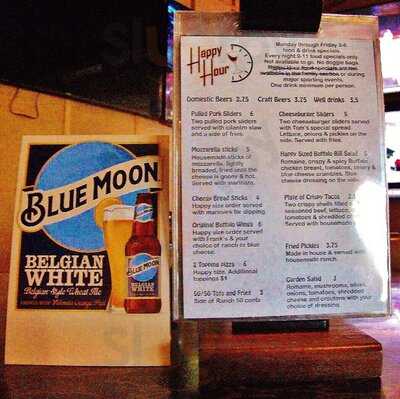 Happy
Hour
Monday through Friday 3-6
food & drink specials.
Every night 9-11 food specials only
Not available to go. No doggie bags.
available in the family section or during
major sporting events.
One drink minimum per person.
Domestic Beers 2.75 Craft Beers 3.75 Well drinks 3.5
Pulled Pork Sliders 6
Two pulled pork sliders
served with cilantro slaw
and a side of fries.
Mozzarella sticks 5
Housemade sticks of
mozzarella, lightly
breaded, fried until the
cheese is gooey & hot.
Served with marinara.
Cheesy Bread Sticks 4
Happy size order served
with marinara for dipping
Original Buffalo Wings 6
Happy size order served
with Frank's & your
choice of ranch or blue
cheese.
2 Topping pizza 6
Happy size. Additional
toppings $1
50/50 Tots and Fries 3
Side of Ranch 50 cents
Cheeseburger Sliders 5
Two cheeseburger sliders served
with Tom's special spread.
Lettuce, onions & pickles on the
side. Served with fries.
Happy Sized Buffalo Bill Salad 5
Romaine, crispy & spicy Buffalo
chicken breast, tomatoes, celery &
blue cheese crumbles. Blue
cheese dressing on the side.
Plate of Crispy Tacos 2.5
Two crispy shells filled
seasoned beef, lettuce,
tomatoes & shredded
Served with housemade
Fried Pickles 3.75
Made in house & served with
housemade ranch.
Garden Salad 3
Romaine, mushrooms, olives,
onions, tomatoes, shredded
cheese and croutons with your
choice of dressing.
BLUE MOON
BELGIAN
WHITE
Belgian-Style Wheat Ale
BREWED WITH Valencia Orange Peel
BLUE MOON
BELGIAN
WHITE